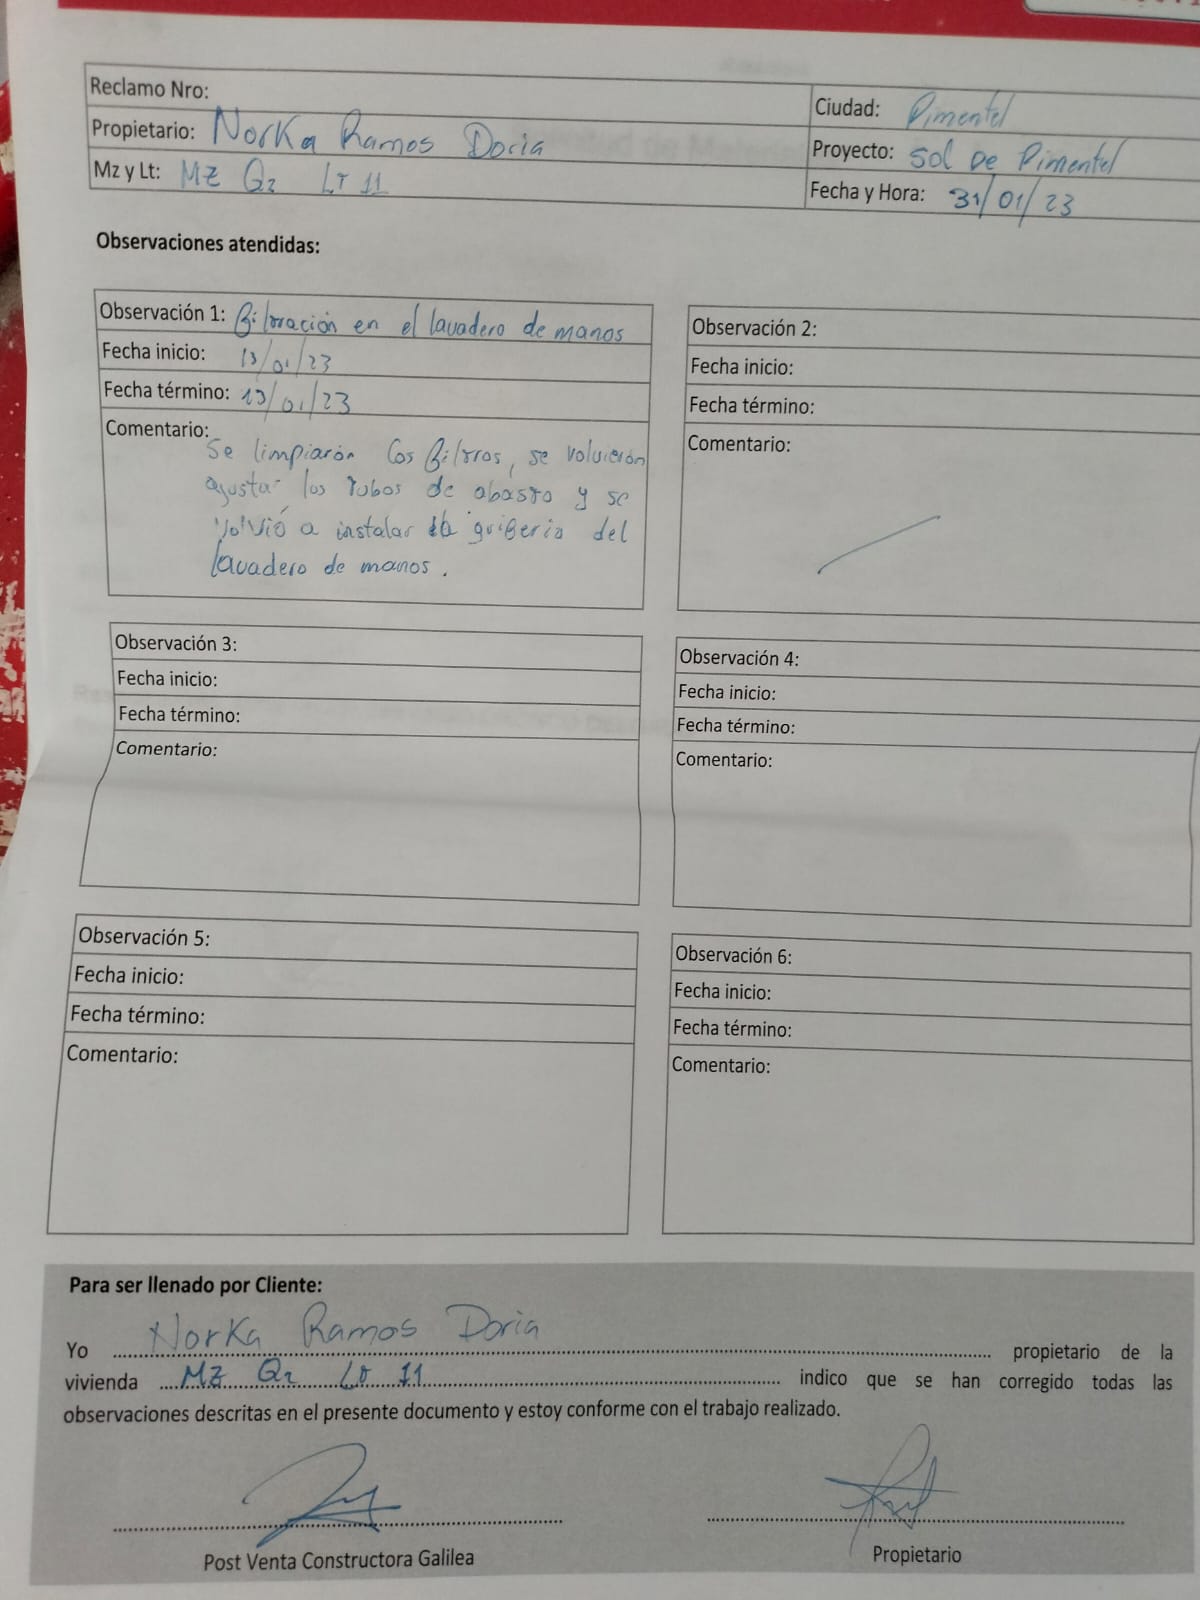 Reclamo Nro:
Propietario: Norka Ramos Doria
Mz y Lt: Mz Q2 Lt 11
Ciudad: Pimentel
Proyecto: Sol De Pimentel
Fecha y Hora: 31/01/23
Observaciones atendidas:
Observación 1: Filtración en el lavadero de manos
Fecha inicio: 13/01/23
Fecha término: 13/01/23
Comentario:
Se limpiarón los filtros, se volvierón
ajustar los tubos de abasto y se
volvió a instalar la griferia del
lavadero de manos.
Observación 2:
Fecha inicio:
Fecha término:
Comentario:
Observación 3:
Fecha inicio:
Fecha término:
Comentario:
Observación 4:
Fecha inicio:
Fecha término:
Comentario:
Observación 5:
Fecha inicio:
Fecha término:
Comentario:
Observación 6:
Fecha inicio:
Fecha término:
Comentario:
Para ser llenado por Cliente:
Yo Norka Ramos Doria propietario de la
vivienda Mz Q2 Lt 11 indico que se han corregido todas las
observaciones descritas en el presente documento y estoy conforme con el trabajo realizado.
Post Venta Constructora Galilea
Propietario